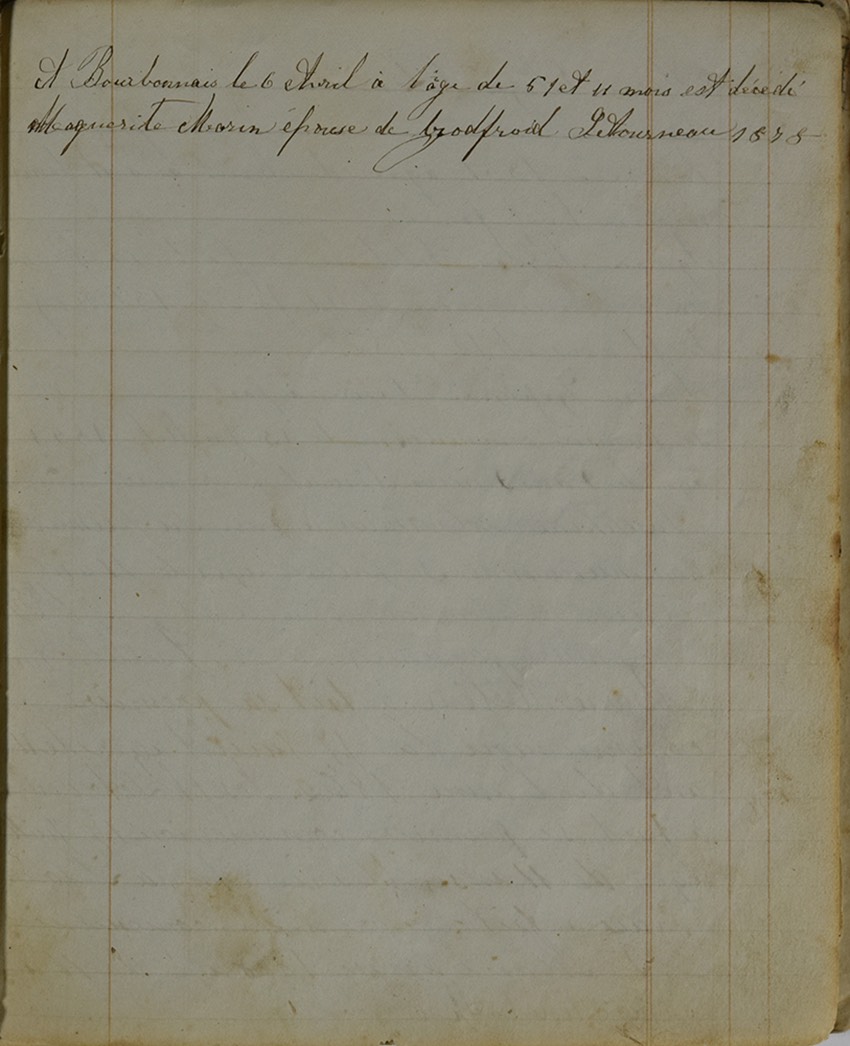 A Bourbonnais le 6 Avril à l'âge de 51 et 11 mois est décédé
Maguerite Morin épouse de Godfroid Letourneau 1878